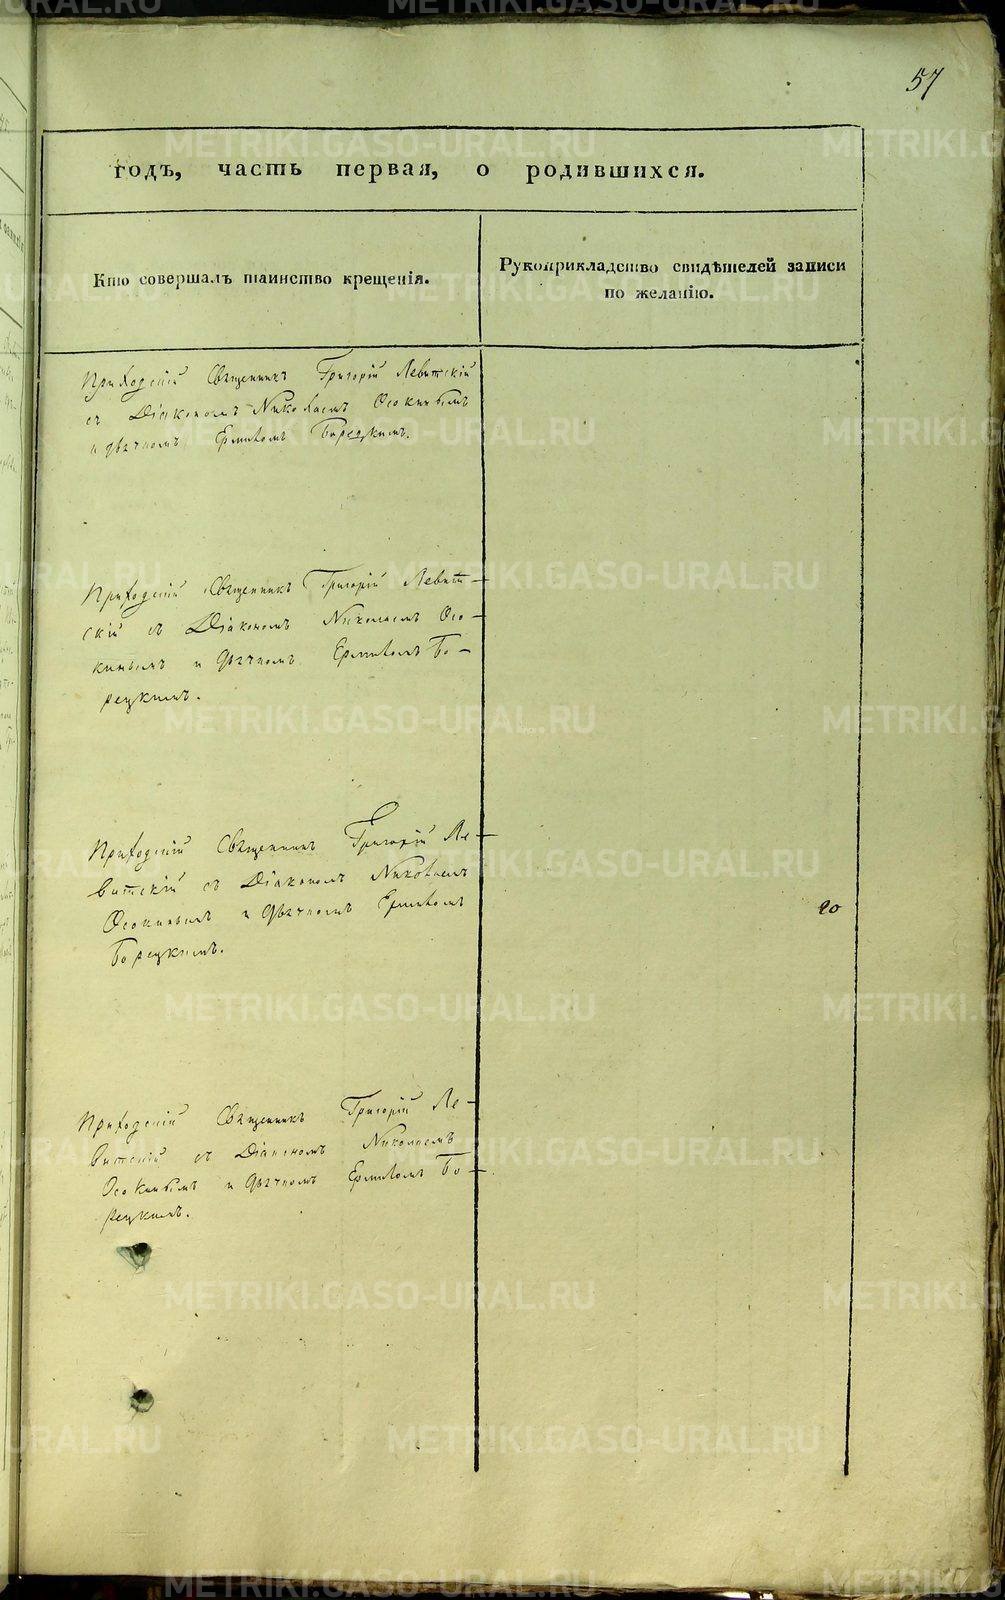 57
годъ, часть первая, о родившихся.
Кто совершалъ таинство крещенія.
Рукоприкладство свидѣтелей записи
по желанію.
Приходскій Священникъ Григорій Левитскій
съ Діакономъ Николаемъ Осокинымъ
и дьячкомъ Борецкимъ.
Приходскій Священникъ Григорій Левит-
скій съ Діакономъ Николаемъ Осо-
кинымъ и Дьячкомъ Бо-
рецкимъ.
Приходскій Священникъ Григорій Ле-
витскій съ Діакономъ Николаемъ
Осокинымъ и Дьячкомъ
Борецкимъ.
20
Приходскій Священникъ Григорій Ле-
витскій съ Діакономъ Николаемъ
Осокинымъ и Дьячкомъ Бо-
рецкимъ.
METRIKI.GASO-URAL.RU